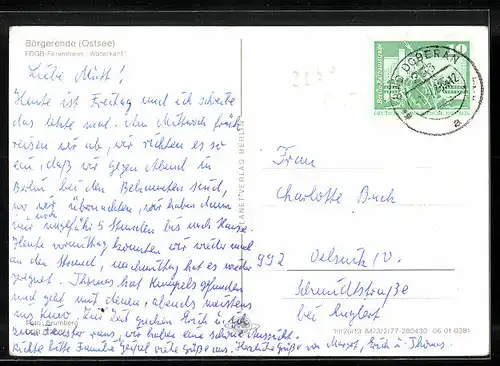 Börgerende (Ostsee)
FDGB-Ferienheim „Waterkant"
Liebe Mutti!
Heute ist Freitag und ich schreibe
das letzte mal. Am Mittwoch früh
reisen wir ab, wir richten es so
ein, daß wir gegen Abend in
Berlin bei den Bekannten sind,
wo wir übernachten, wir haben dann
nur noch ungefähr 5 Stunden bis nach Hause.
Heute vormittag konnten wir wieder mal
an den Strand, nachmittag hat es wieder
geregnet. Thomas hat Kumpels gefunden
und geht mit denen, abends meistens
ins Kino. Zur Zeit gucken Erich u. ich
zum Fenster raus, wir haben eine schöne Aussicht.
Richte bitte Familie viele Grüße aus. Herzliche Grüße von Margot, Erich u. Thomas.
Foto: Brumberg
PLANET-VERLAG BERLIN
BAD DOBERAN
a
10
Frau
Charlotte Bach
992 Oelsnitz V.
Schmidtstraße
bei Englert
III/26/13 A4/3/2/77-280430 06 01 0381